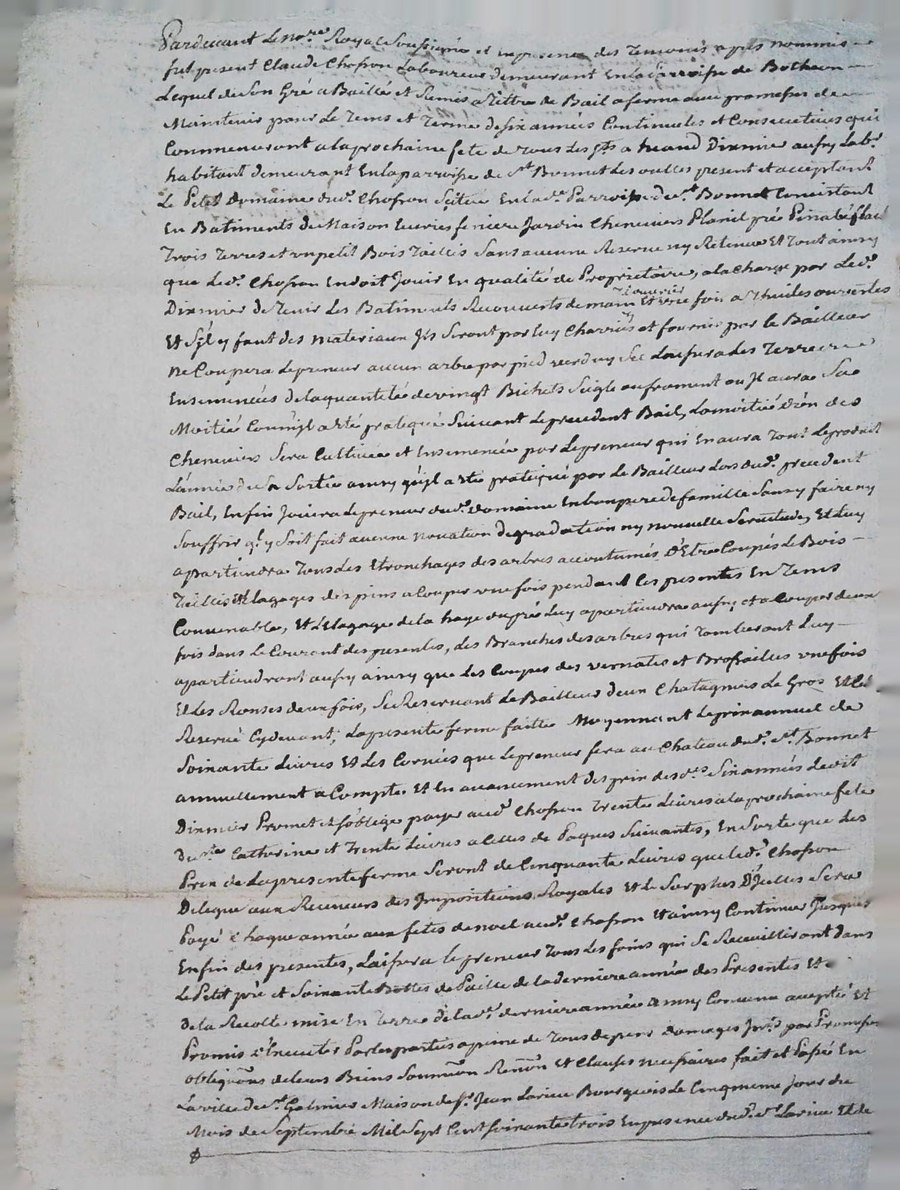 Pardevant Le no.re Royal Soussigné et en presence des Temoins apres nommés
fut present Claude Chofron Laboureur demeurant En la parroisse de Botheon
Lequel de son Gré a Baillé et Remis a Tittre de Bail a ferme avec promesses de
Maintenir pour Le Tems et Terme de six années Continueles et Consecutives qui
Commenceront a la prochaine fete de Tous Les Sts a Dixmier aussy Lab.r
habitant demeurant En la parroisse de St Bonnet Les oulles present et acceptant
Le Petit Domaine dud. Chofron Scitué En lad.e Parroisse de St. Bonnet Consistant
En Batiments de Maison Ecuries feniere Jardin Cheneviers pré
Trois Terres et un petit Bois Taillis Sans aucune Reserve ny Retenue Et Tout ainsy
que Led. Chofron En doit Jouir En qualité de Proprietaire, a la Charge par Led.
Dixmier de Tenir Les Batiments Recouverts de main d'ouvrier Et une fois a Thuiles ouvertes
Et S'il y faut des materiaux Ils Seront par Luy Charriés et fournis par le Bailleur
Ne Coupera Le preneur aucun arbre par pied verd ny Sec Laissera Les Terres
Ensemencés de la quantité de vingt Bichets Seigle ou froment ou Il aura Sa
Moitié Comm'il a eté pratiqué Suivant Le precedant Bail, La moitié d'en des
Cheneviers Sera Cultivée et Ensemencée par Le preneur qui En aura Tout Le produit
L'année de sa Sortie ainsy qu'il a eté pratiqué par le Bailleur Lors dud. precedent
Bail, Enfin Jouira Le preneur dud. Domaine En bon pere de famille Sans y faire ny
Souffrir qu'il y Soit fait aucune novation degradation ny nouvelle Servitude, Et Luy
apartiendra Tous Les Etronchages des arbres accoutumés d'Etre Coupés Le Bois
Taillis Et Elagages des pins a Couper une fois pendant Les presentes En Tems
Convenable, Et L'Elagage de la haye du pré Luy apartiendra aussy et a Couper deux
fois dans Le Courant des presentes, Les Branches des arbres qui Tomberont Luy
apartiendront aussy ainsy que Les Coupes des vernates et Brossailes une fois
Et Les Ronses deux fois, Se Reservant Le Bailleur deux Chatagniers Le Gros Et
Reservé Cydevant, La presente ferme faitte Moyennant Le prix annuel de
Soixante Livres Et Les Corvées que Le preneur fera au Chateau dud. St. Bonnet
annuellement a Compte Et En avancement des prix desd.es Six années Ledit
Dixmier Promet et s'oblige payer aud. Chofron Trente Livres a la prochaine fete
de Ste Catherine et Trente Livres a Celles de Paques Suivantes, En Sorte que Les
Prix de La presente ferme Seront de Cinquante Livres que Led. Chofron
Delegue aux Receveurs des Impositions Royales Et Le Surplus D'Icelles Sera
Payé Chaque année aux fétes de noel aud. Chofron Et ainsy Continuer Jusques
En fin des presentes, Laissera le preneur Tous Les foins qui Se Recueilliront dans
Le Petit pré et Soixante Bottes de Paille de la derniere année des Presentes Et
de la Recolte mise En Terre de lad. derniere année ainsy Convenu accepté Et
Promis D'Executer Par Les parties a peine de Tous depens domages Int.s par Promesses
obligaõns de leurs Biens Soumiõn Renõn Et Clauses necessaires fait et Passé En
La ville de St. Galmier Maison de Sr. Jean Larive Bourgeois Le Cinquieme Jour du
Mois de Septembre Mil Sept Cent soixante trois En presence dud. Sr. Larive Et de